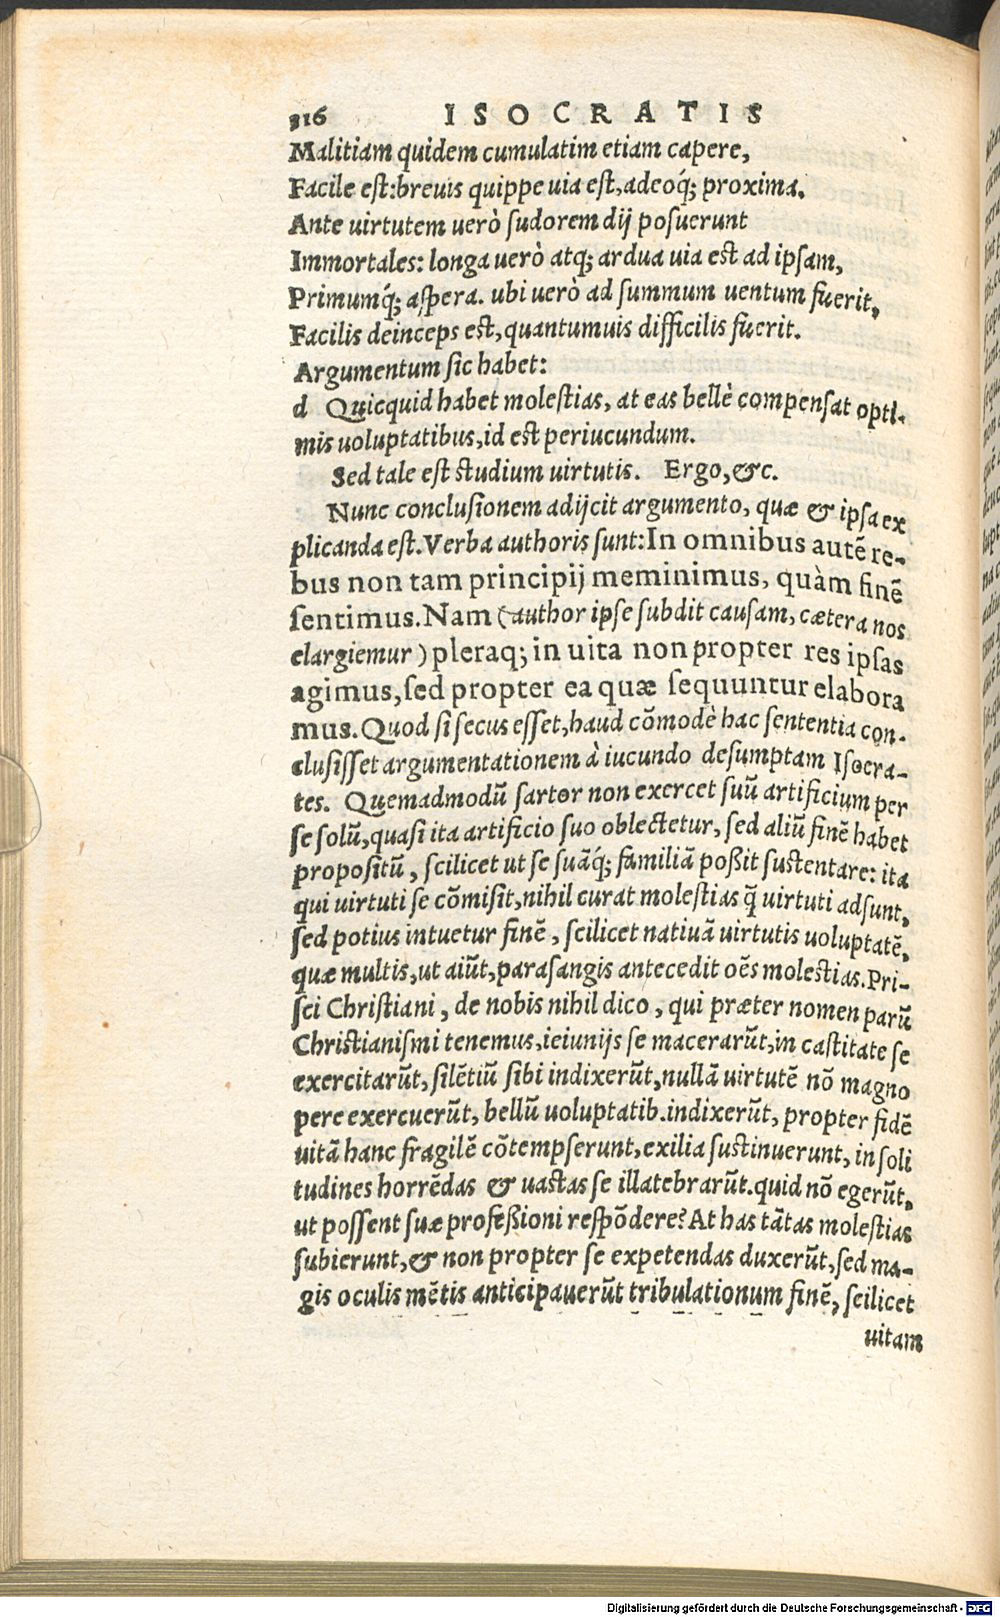 316 ISOCRATIS
Malitiam quidem cumulatim etiam capere,
Facile est: breuis quippe uia est, adeoq́; proxima.
Ante uirtutem uerò sudorem dij posuerunt
Immortales: longa uerò atq; ardua uia est ad ipsam,
Primumq́; aspera. ubi uerò ad summum uentum fuerit,
Facilis deinceps est, quantumuis difficilis fuerit.
Argumentum sic habet:
d Quicquid habet molestias, at eas bellè compensat opti-
mis uoluptatibus, id est periucundum.
Sed tale est studium uirtutis. Ergo, &c.
Nunc conclusionem adijcit argumento, quæ & ipsa ex
plicanda est. Verba authoris sunt: In omnibus autē re-
bus non tam principij meminimus, quàm finē
sentimus. Nam (author ipse subdit causam, cætera nos
elargiemur) pleraq; in uita non propter res ipsas
agimus, sed propter ea quæ sequuntur elabora
mus. Quod si secus esset, haud cōmodè hac sententia con-
clusisset argumentationem à iucundo desumptam Isocra-
tes. Quemadmodū sartor non exercet suū artificium per
se solū, quasi ita artificio suo oblectetur, sed aliū finē habet
propositū, scilicet ut se suāq́; familiā poßit sustentare: ita
qui uirtuti se cōmisit, nihil curat molestias q̄ uirtuti adsunt,
sed potius intuetur finē, scilicet natiuā uirtutis uoluptatē,
quæ multis, ut aiūt, parasangis antecedit oēs molestias. Pri-
sci Christiani, de nobis nihil dico, qui præter nomen parū
Christianismi tenemus, ieiunijs se macerarūt, in castitate se
exercitarūt, silētiū sibi indixerūt, nullā uirtutē nō magno
pere exercuerūt, bellū uoluptatib. indixerūt, propter fidē
uitā hanc fragilē cōtempserunt, exilia sustinuerunt, in soli
tudines horrēdas & uastas se illatebrarūt. quid nō egerūt,
ut possent suæ profeßioni respōdere? At has tātas molestias
subierunt, & non propter se expetendas duxerūt, sed ma-
gis oculis mētis anticipauerūt tribulationum finē, scilicet
uitam
Digitalisierung gefördert durch die Deutsche Forschungsgemeinschaft - DFG